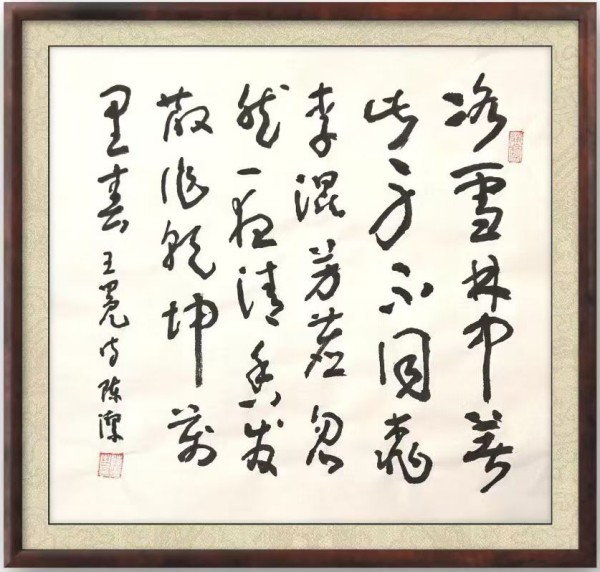 冰雪林中著
此身不同桃
李混芳塵忽
然一夜清香发
散作乾坤萬
里春 王冕诗 陈潔